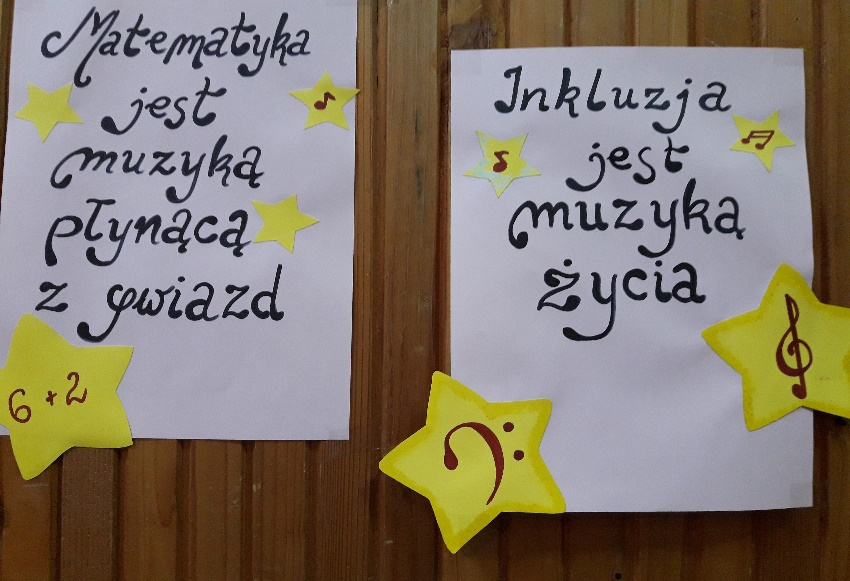 Matematyka
jest
muzyką
płynącą
z gwiazd
6 + 2
Inkluzja
jest
muzyką
życia